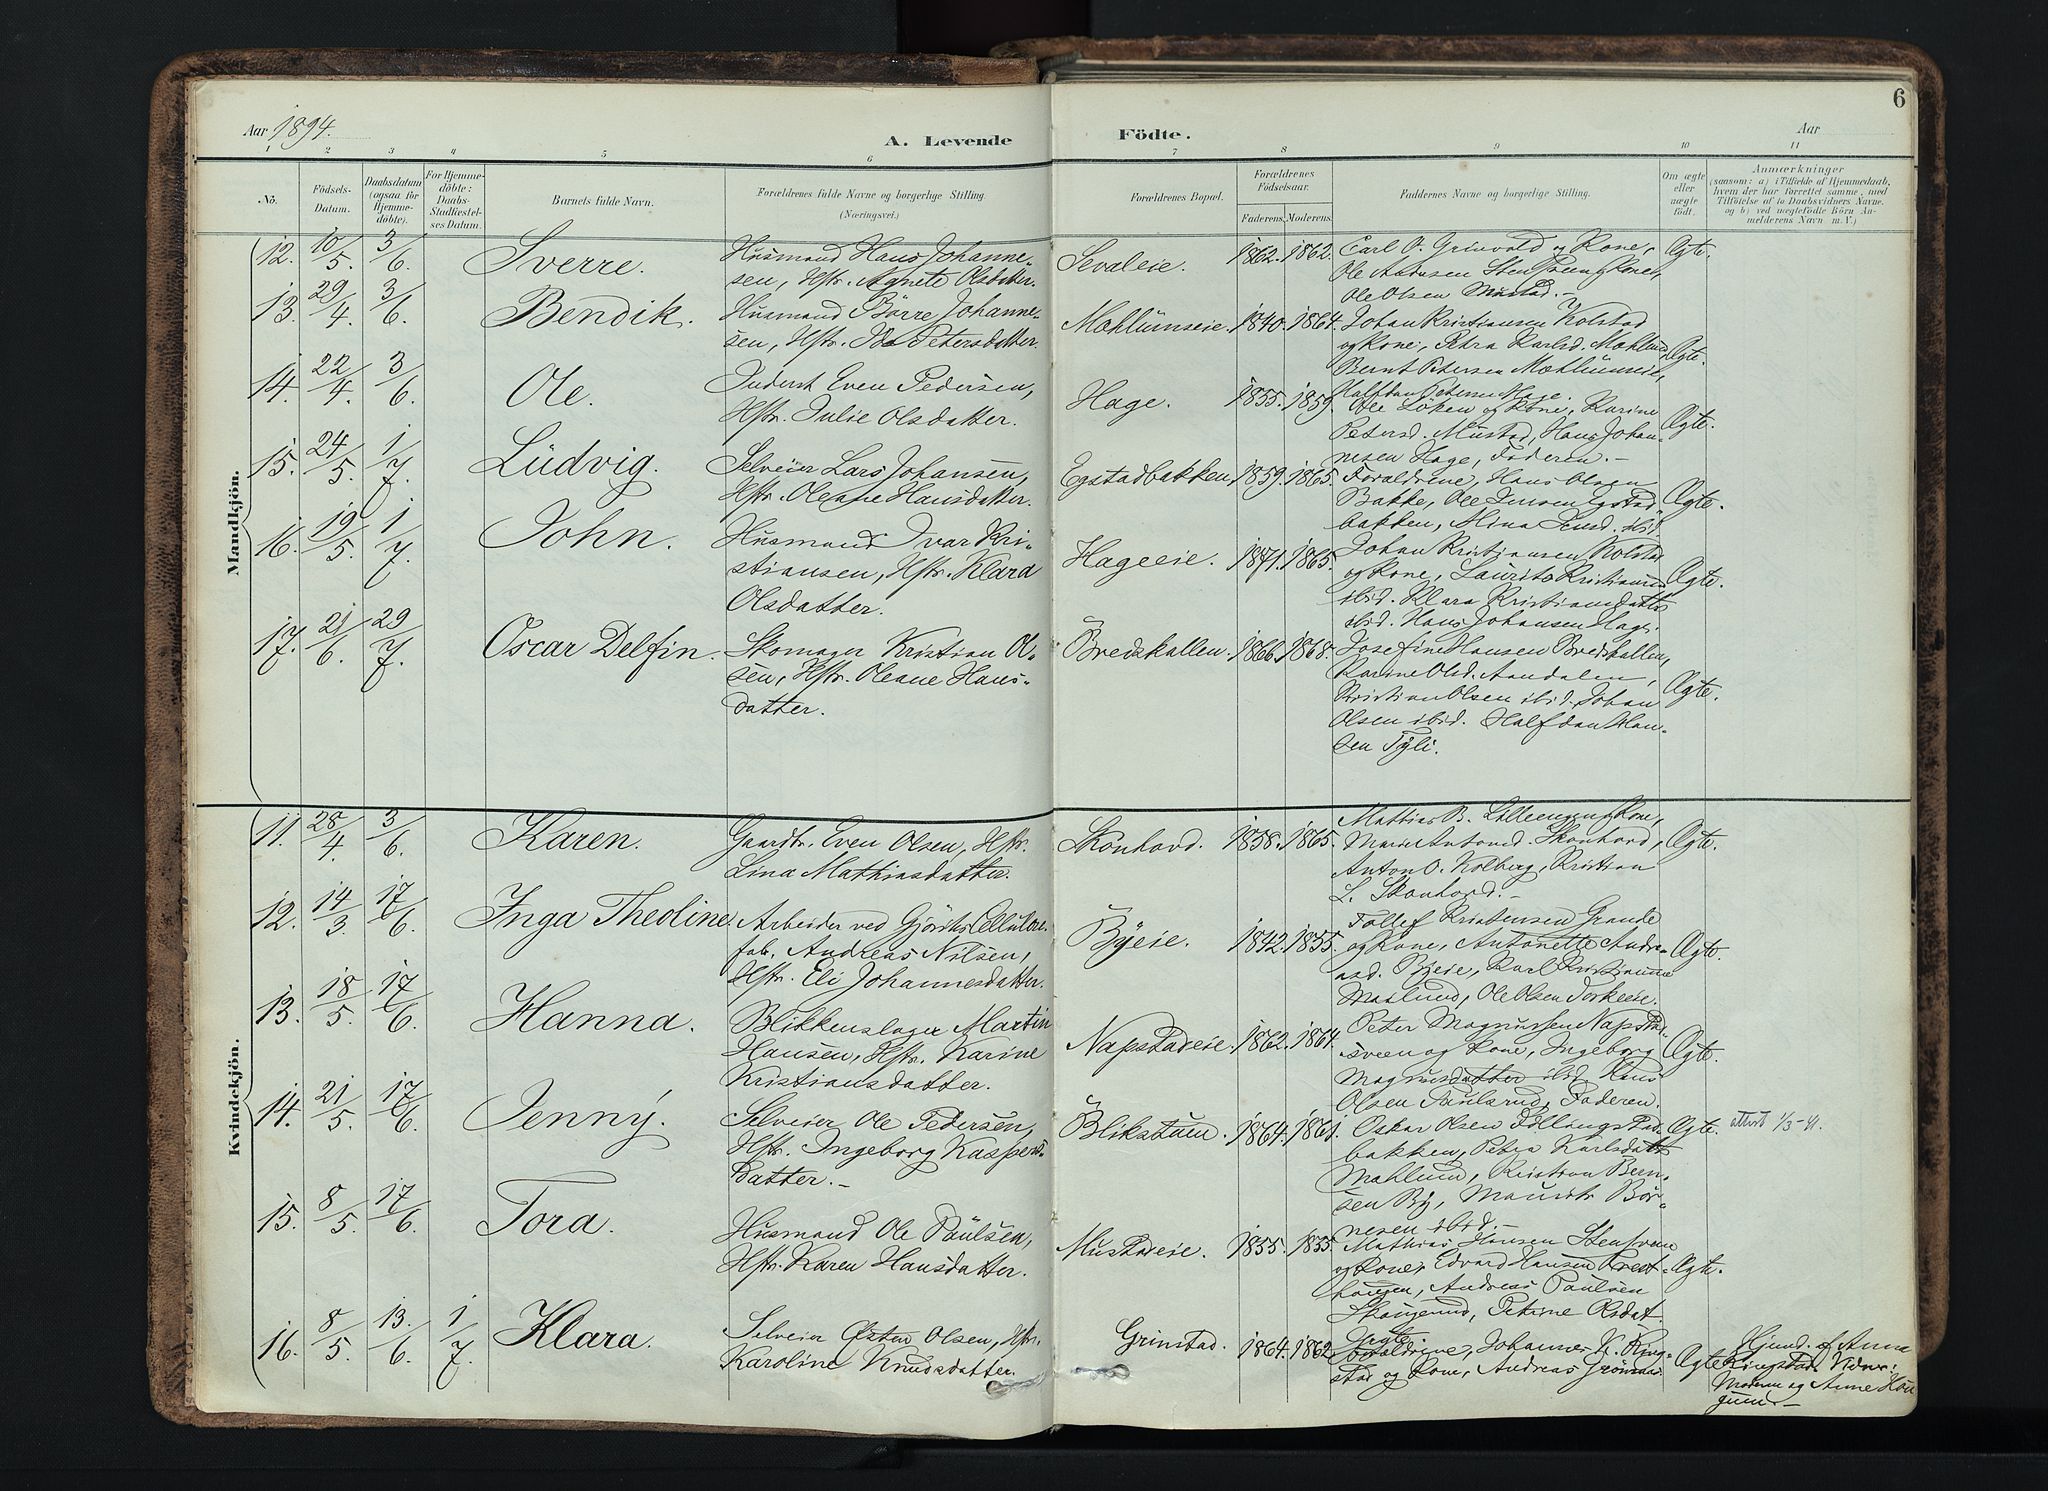 6
Aar 1894.
A. Levende
Födte.
Aar
1 2 3 4 5 6 7 8 9 10 11
No.
Födsels-
Datum.
Daabsdatum
(ogsaa for
Hjemme-
döbte).
For Hjemme-
döbte:
Daabs-
Stadfæstel-
ses Datum.
Barnets fulde Navn.
Forældrenes fulde Navne og borgerlige Stilling.
(Næringsvei.)
Forældrenes Bopæl.
Forældrenes
Födselsaar.
Faderens. Moderens.
Faddernes Navne og borgerlige Stilling.
Om ægte
eller
uægte
födt.
Anmærkninger
(saasom: a) i Tilfælde af Hjemmedaab,
hvem der har forrettet samme, med
Tilföielse af to Daabsvidners Navne.
og b) ved uægtefödte Börn An-
melderens Navn m. V.)
Mandkjön.
12. 10/5. 3/6. Sverre. Husmand Hans Johanne-
sen, Hstr. Agnete Olsdatter.
Sevaleie. 1862. 1862. Carl O. Grinvold og Kone,
Ole Olsen Mustad.-
Ægte.
13. 29/4. 3/6. Bendik. Husmand Börre Johanne-
sen, Hstr. Ida Petersdatter.
Mæhlumseie. 1840. 1864. Johan Kristiansen Kolstad
og Kone, Petra Karlsd. Mæhlum,
Bernt Petersen Mæhlumseie,
Halfdan Petersen Hage.
Ægte.
14. 22/4. 3/6. Ole. Inderst Even Pedersen,
Hstr. Julie Olsdatter.
Hage. 1855. 1859. Ole Löken og Kone, Karine
Petersd. Mustad, Hans Johan-
nesen Hage, Faderen.-
Ægte.
15. 24/5. 1/7. Ludvig. Selveier Lars Johansen,
Hstr. Oleane Hansdatter.
Egstadbakken. 1859. 1865. Forældrene, Hans Olsen
Bakke, Ole Jensen Egstad-
bakken, Mina Lensd. ibid.
Ægte.
16. 19/5. 1/7. John. Husmand Ivar Kri-
stiansen, Hstr. Klara
Olsdatter.
Hageeie. 1871. 1865. Johan Kristiansen Kolstad
og Kone, Laurits Kristiansen
ibid. Klara Kristiansdatter
ibid. Hans Johansen Hage.
Ægte.
17. 21/6. 29/7. Oscar Delfin. Skomager Kristian Ol-
sen, Hstr. Oleane Hans-
datter.
Bredskallen. 1866. 1868. Josefine Hansen Bredskallen,
Karine Olsd. Aandalen,
Kristian Olsen ibid. Johan
Olsen ibid. Halfdan Han-
sen Fyli.
Ægte.
Kvindekjön.
11. 28/4. 3/6. Karen. Gaardbr. Even Olsen, Hstr.
Lina Mathiasdatter.
Skönhovd. 1858. 1865. Mathias B. Lilleengen og Kone,
Marie Antonsd. Skonhovd,
Anton O. Kolberg, Kristian
L. Skonhovd.-
Ægte.
12. 14/3. 17/6. Inga Theoline. Arbeider ved Gjöviks Cellulose-
fab. Andreas Nilsen,
Hstr. Eli Johannesdatter.
Byeie. 1842. 1855. Tollef Kristensen Grande
og Kone, Antonette Andre-
asd. Byeie, Karl Kristiansen
Mæhlum, Ole Olsen Torkeeie.
Ægte.
13. 18/5. 17/6. Hanna. Blikkenslager Martin
Hansen, Hstr. Karine
Kristiansdatter.
Napstadeie. 1862. 1864. Peter Magnussen Napstad-
sveen og Kone, Ingeborg
Magnusdatter ibid. Hans
Olsen Paulsrud, Faderen.
Ægte.
14. 21/5. 17/6. Jenny. Selveier Ole Pedersen,
Hstr. Ingeborg Kaspers-
datter.-
Blikstuen. 1864. 1861. Oskar Olsen
bakken, Petra Karlsdatt.
Mæhlum, Kristian Bern-
sen By, Maurits Bör-
nesen ibid.-
Ægte. attest 1/3-41.
15. 8/5. 17/6. Tora. Husmand Ole Paulsen,
Hstr. Karen Hansdatter.
Mustadeie. 1855. 1855. Mathias Hansen Stensveen
og Kone, Edvard Hansen
Andreas Paulsen
Skougerud, Petrine Olsdat.
Ægte.
16. 8/5. 13./6. 1/7. Klara. Selveier Östen Olsen, Hstr.
Karoline Knudsdatter.
Grinstad. 1864. 1862. Forældrene, Johannes K. Ring-
stad og Kone, Andreas Grönnas.
Ægte Hjemd. af Anna
Ringstad. Vidner:
Moderen og Anne Hau-
gum.-